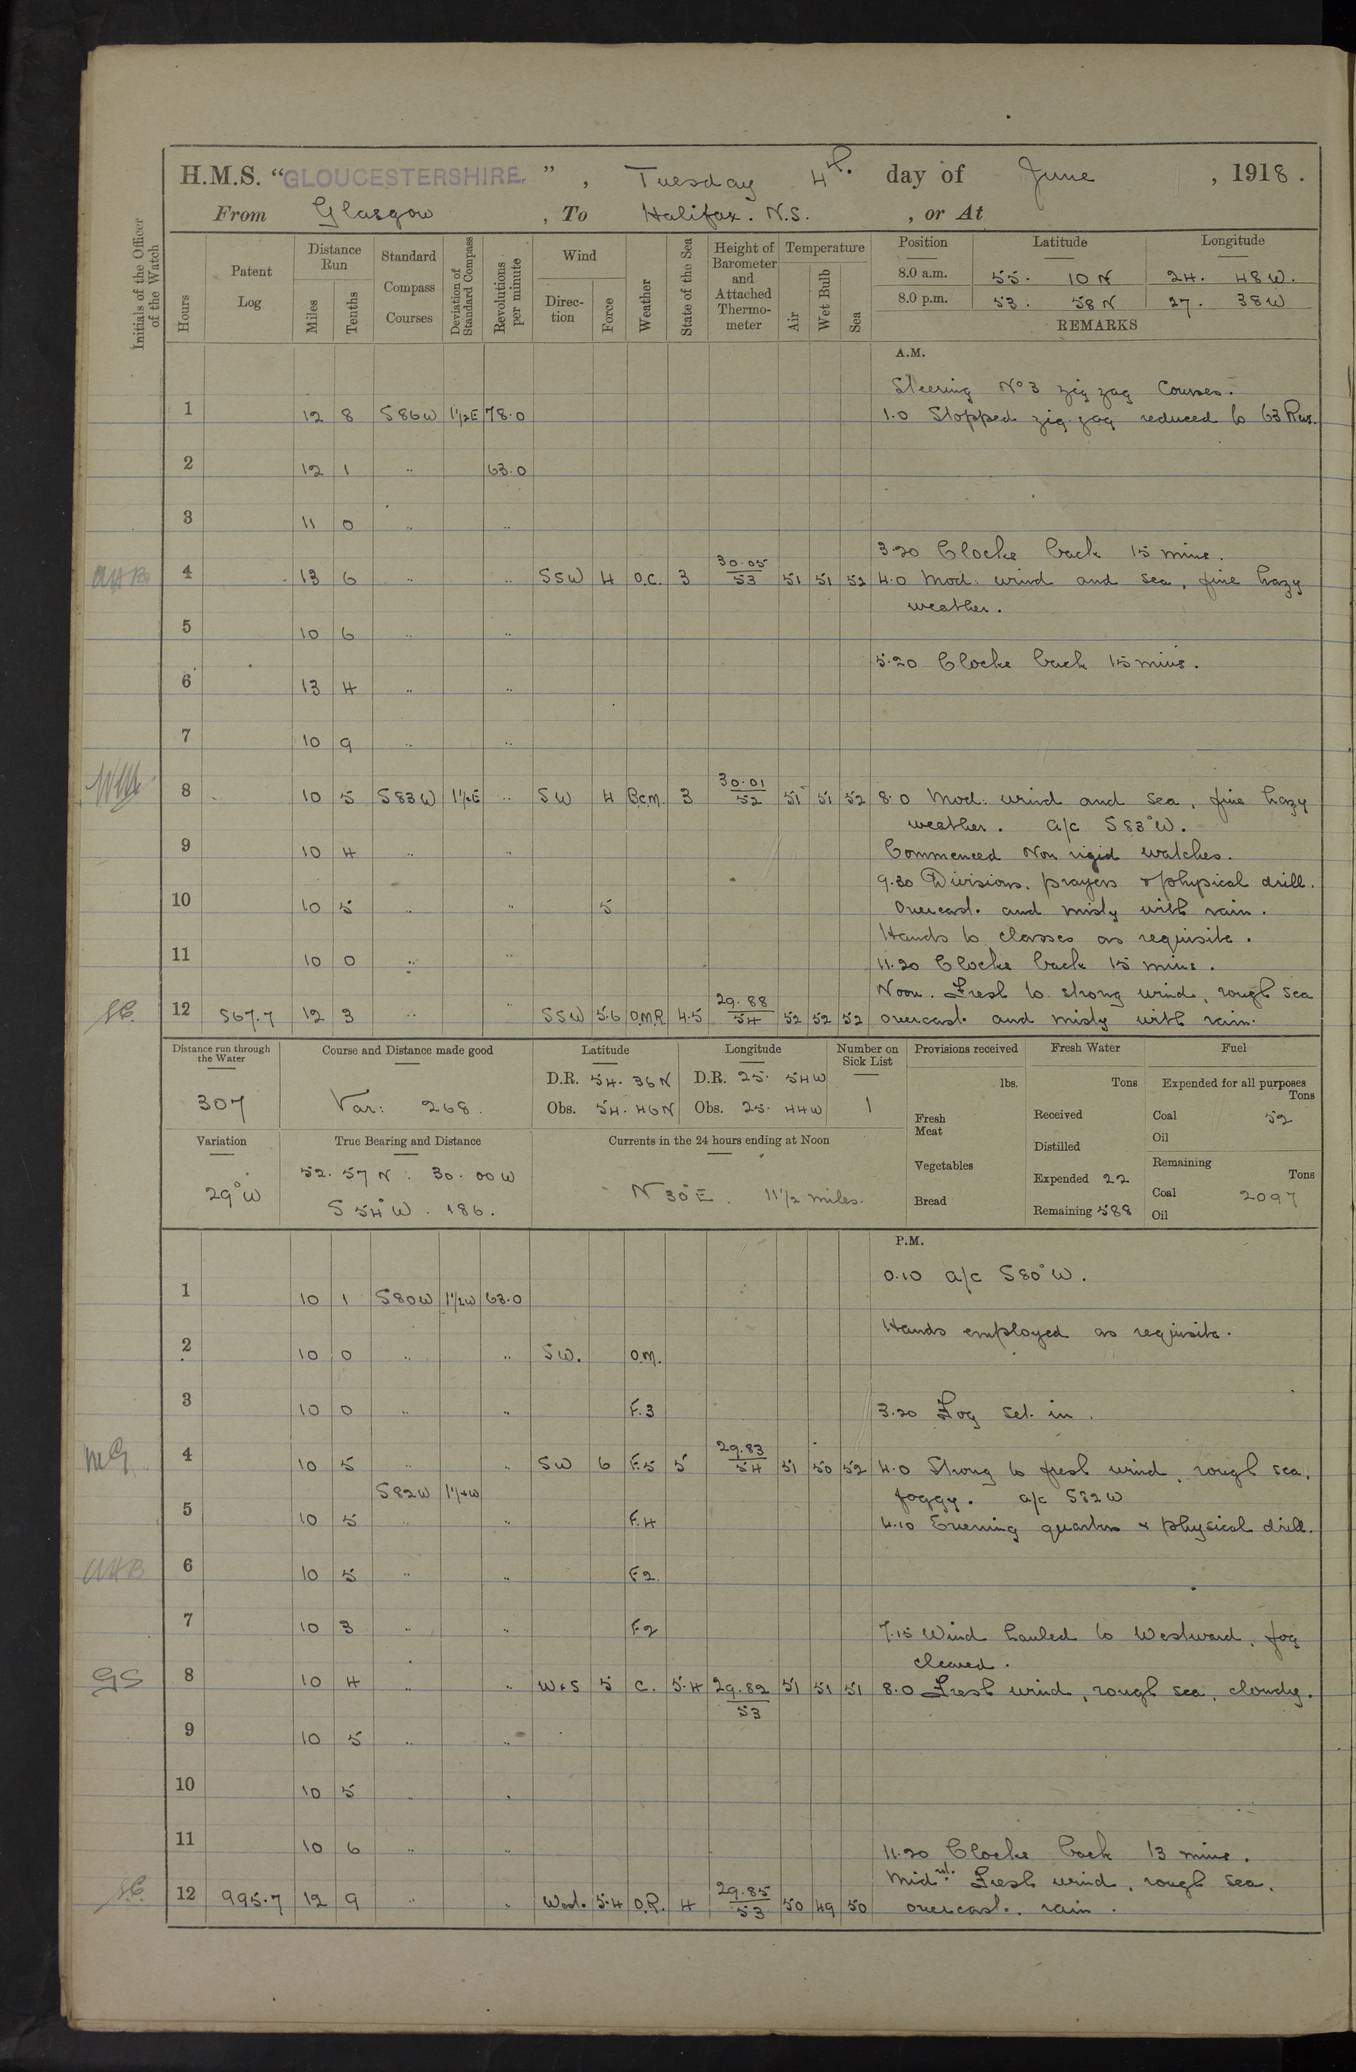 H.M.S. "GLOUCESTERSHIRE.", Tuesday 4th. day of June, 1918.
From Glasgow, To Halifax. N.S., or At
Initials of the Officer of the Watch
Hours
Patent Log
Distance Run
Miles
Tenths
Standard Compass Courses
Deviation of Standard Compass
Revolutions per minute
Wind
Direction
Force
Weather
State of the Sea
Height of Barometer and Attached Thermometer
Temperature
Air
Wet Bulb
Sea
Position Latitude Longitude
8.0 a.m. 55. 10 N 24. 48 W.
8.0 p.m. 53. 58 N 27. 38 W
REMARKS
A.M.
Steering No 3 zig zag Courses.
1 12 8 S86W 1½E 78.0 1.0 Stopped zig-zag reduced to 63 Revs.
2 12 1 " 63.0
3 11 0 " "
3.20 Clocks back 15 mins.
4 13 6 " " SSW 4 O.C. 3 30.05/53 51 51 52 4.0 Mod. wind and sea, fine hazy
weather.
5 10 6 " "
5.20 Clocks back 15 mins.
6 13 4 " "
7 10 9 " "
8 10 5 S83W 1½E " SW 4 B.C.M. 3 30.01/52 51 51 52 8.0 Mod. wind and sea, fine hazy
weather. a/c S83°W.
9 10 4 " " Commenced Non rigid watches.
9.30 Divisions. prayers & physical drill.
10 10 5 " " 5 Overcast. and misty with rain.
Hands to classes as requisite.
11 10 0 " " 11.20 Clocks back 15 mins.
Noon. Fresh to strong wind, rough sea
12 567.7 12 3 " " SSW 5.6 O.M.R. 4.5 29.88/54 52 52 52 overcast and misty with rain.
Distance run through the Water
307
Course and Distance made good
Var: 268.
Latitude
D.R. 54. 36N
Obs. 54. 46N
Longitude
D.R. 25. 54W
Obs. 25. 44W
Number on Sick List
1
Variation
29°W
True Bearing and Distance
52. 57 N. 30. 00 W
S 54°W. 186.
Currents in the 24 hours ending at Noon
N 30°E. 11½ miles.
Provisions received
lbs.
Fresh Meat
Vegetables
Bread
Fresh Water
Tons
Received
Distilled
Expended 22
Remaining 588
Fuel
Expended for all purposes
Tons
Coal 52
Oil
Remaining
Tons
Coal 2097
Oil
P.M.
0.10 a/c S80°W.
1 10 1 S80W 1½W 63.0
Hands employed as requisite.
2 10 0 " " SW. O.M.
3 10 0 " " F.3 3.20 Fog set in.
4 10 5 " " SW 6 F.5 5 29.83/54 51 50 52 4.0 Strong to fresh wind, rough sea,
S82W foggy. a/c S82W
5 10 5 " " F.4 4.10 Evening quarters & physical drill.
6 10 5 " " F.2
7 10 3 " " F.2 7.15 Wind hauled to Westward, fog
cleared.
8 10 4 " " WxS 5 C. 5.4 29.82/53 51 51 51 8.0 Fresh wind, rough sea, cloudy.
9 10 5 " "
10 10 5 " "
11 10 6 " " 11.20 Clocks back 13 mins.
Midnt. Fresh wind, rough sea,
12 995.7 12 9 " " West. 5.4 O.R. 4 29.85/53 50 49 50 overcast. rain.